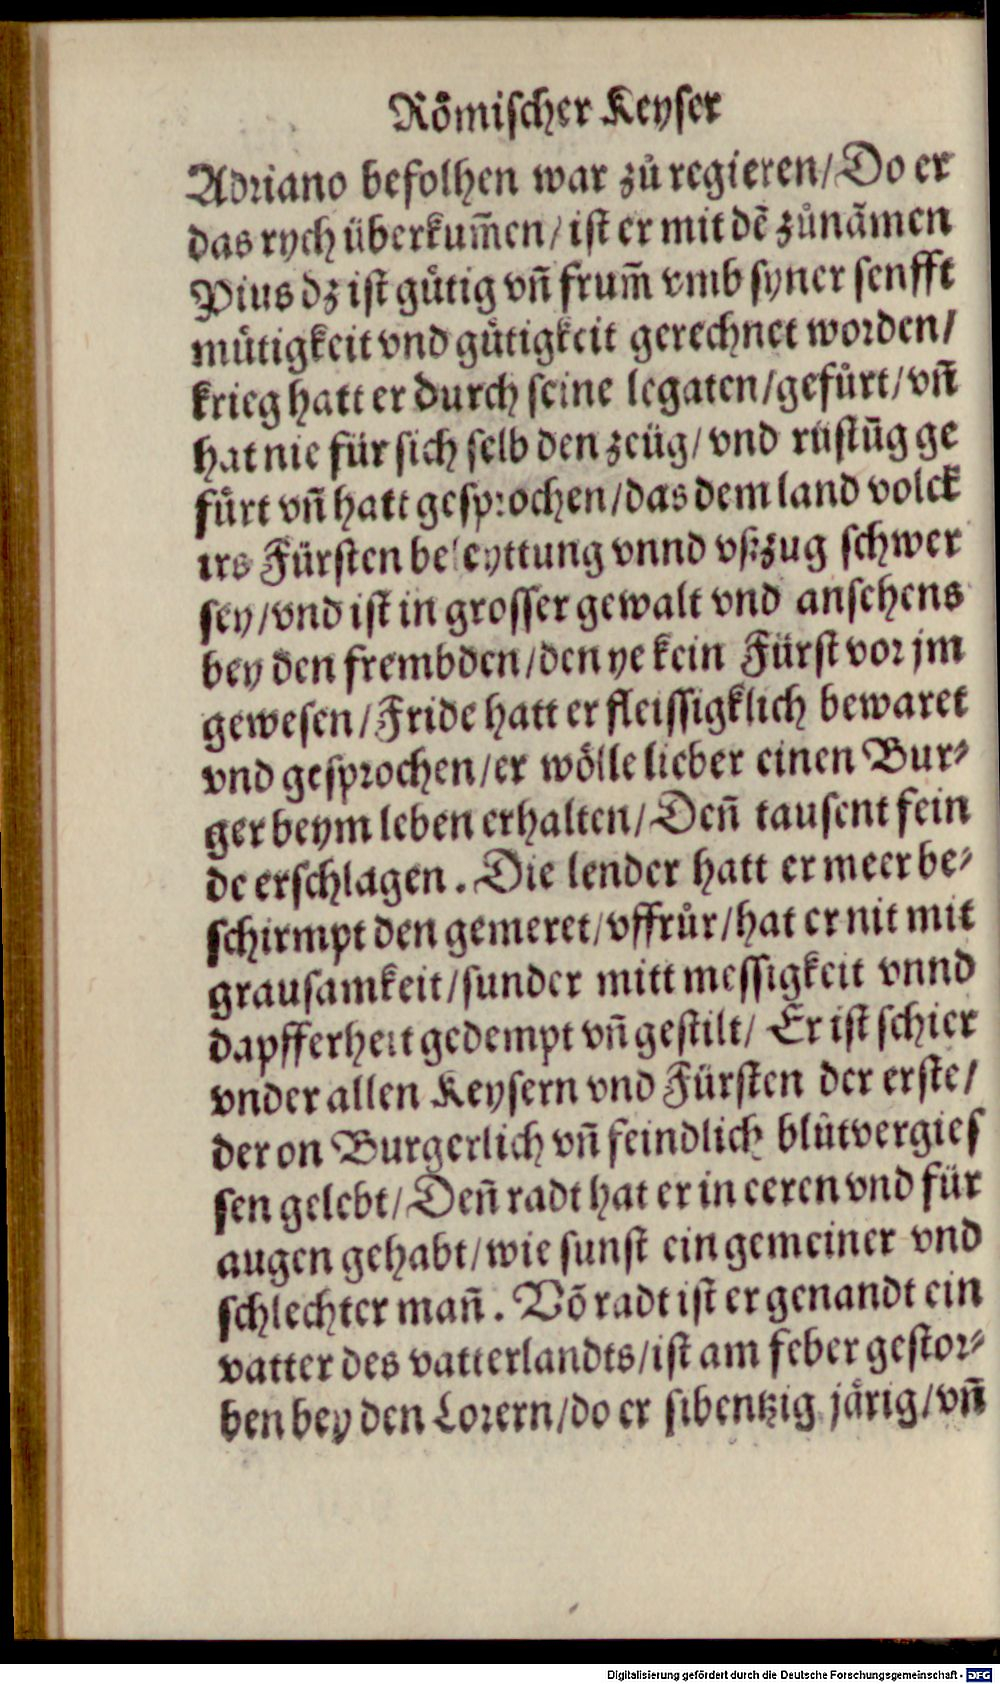 Roͤmischer Keyser
Adriano befolhen war zuͦ regieren/ Do er
das rych überkum̃en/ ist er mit dē zuͦnāmen
Pius dz ist guͤtig vn̄ frum̃ vmb syner senfft
muͤtigkeit vnd guͤtigkeit gerechnet worden/
krieg hatt er durch seine legaten/gefuͤrt/ vn̄
hat nie für sich selb den zeüg/ vnd rüstūg ge
fuͤrt vn̄ hatt gesprochen/das dem land volck
irs Fürsten beleyttung vnnd vßzug schwer
sey/vnd ist in grosser gewalt vnd ansehens
bey den frembden/den ye kein Fürst vor jm
gewesen/Fride hatt er fleissigklich bewaret
vnd gesprochen/er woͤlle lieber einen Bur⸗
ger beym leben erhalten/Deñ tausent fein
de erschlagen. Die lender hatt er meer be⸗
schirmpt den gemeret/vffruͦr/hat er nit mit
grausamkeit/sunder mitt messigkeit vnnd
dapfferheit gedempt vn̄ gestilt/ Er ist schier
vnder allen Keysern vnd Fürsten der erste/
der on Burgerlich vn̄ feindlich bluͦtvergies
sen gelebt/Deñ radt hat er in eeren vnd für
augen gehabt/wie sunst ein gemeiner vnd
schlechter mañ. Võ radt ist er genandt ein
vatter des vatterlandts/ist am feber gestor⸗
ben bey den Lorern/do er sibentzig jaͤrig/vn̄
Digitalisierung gefördert durch die Deutsche Forschungsgemeinschaft - DFG